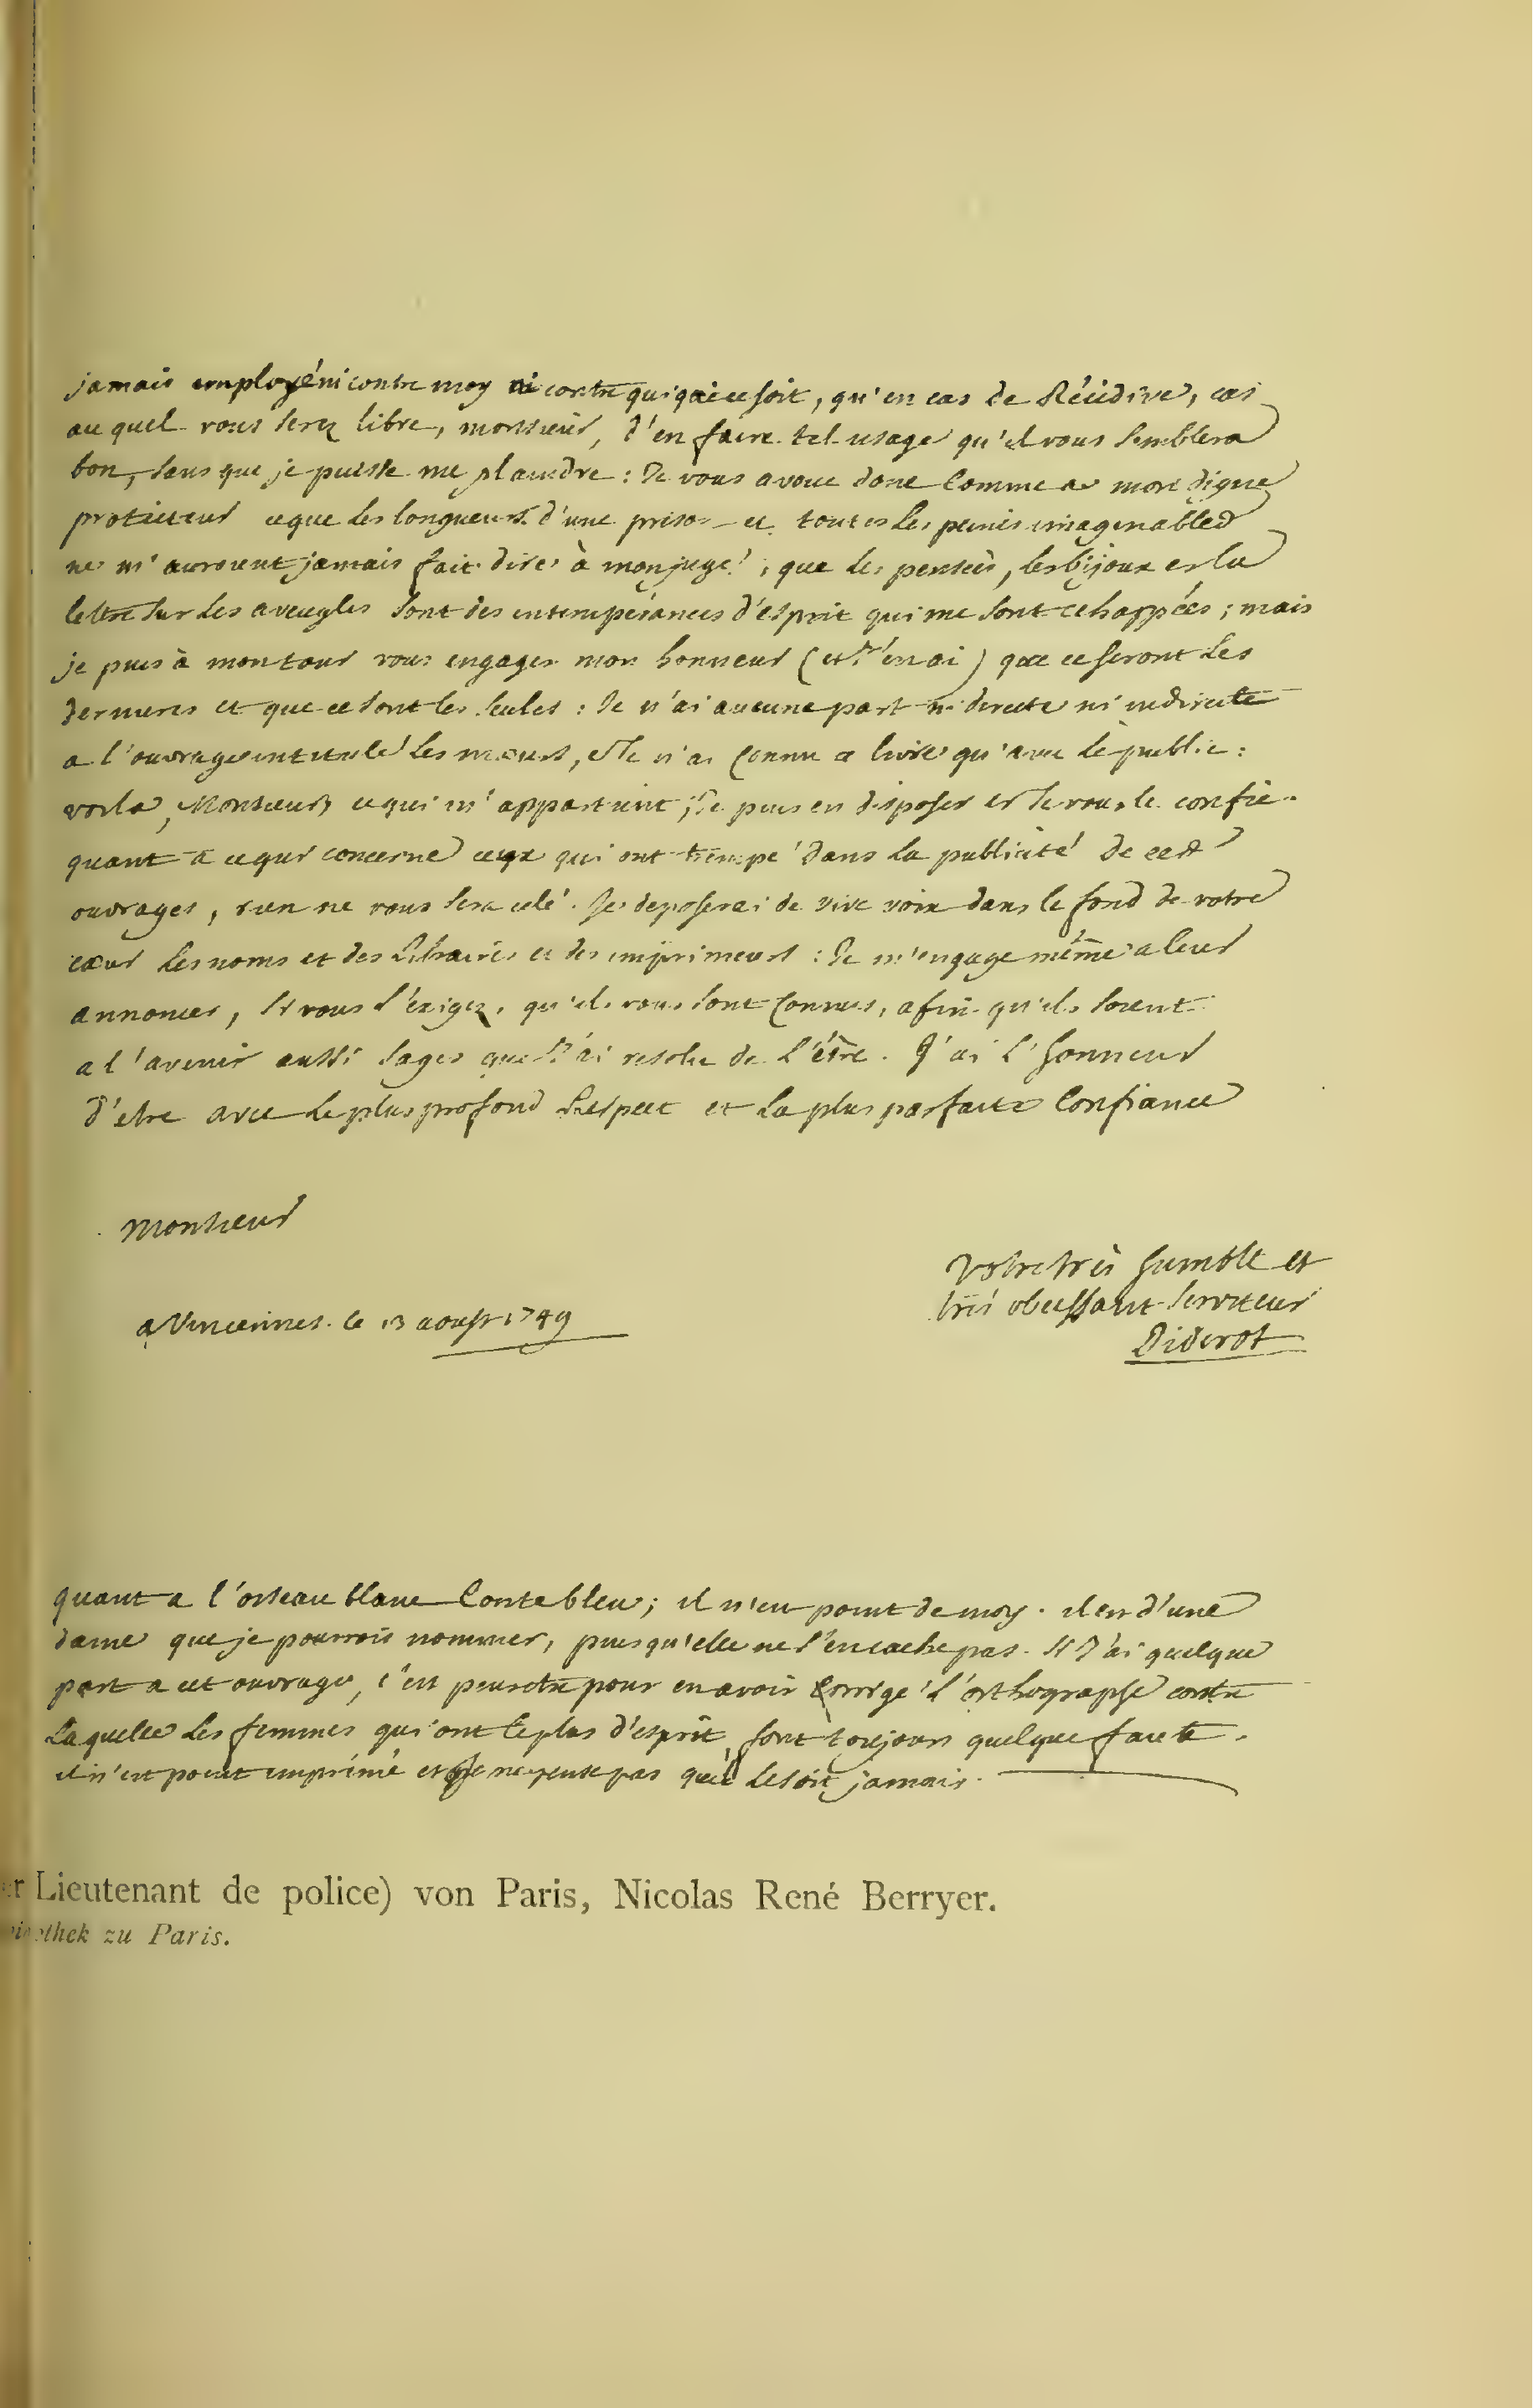 jamais employé ni contre moy ni contre qui que ce soit, qu'en cas de Récidive, cas
au quel vous serez libre, monsieur, d'en faire tel usage qu'il vous semblera
bon, sans que je puisse me plaindre : Je vous avoue donc Comme a mon digne
protecteur ce que les longueurs d'une prison et toutes les peines imaginables
ne m'auroient jamais fait dire à mon juge ; que les pensées, les bijoux et la
lettre sur les aveugles sont des intempérances d'esprit qui me sont echappées ; mais
je puis à mon tour vous engager mon honneur (et j'en ai) que ce seront les
dernieres et que ce sont les seules : Je n'ai aucune part ni directe ni indirecte
a l'ouvrage intitulé les mœurs, et Je n'ai Connu ce livre qu'avec le public :
voila, Monsieur, ce qui m'appartient ; Je puis en disposer et Je vous le confie.
quant a ce qui concerne ceux qui ont trempé dans la publicité de ces
ouvrages, rien ne vous sera celé. Je deposerai de vive voix dans le fond de votre
cœur les noms et des Libraires et des imprimeurs : Je m'engage même a leur
annoncer, si vous l'exigez, qu'ils vous sont Connus, afin qu'ils soient
a l'avenir aussi sages que J'ai resolu de l'être. J'ai l'honneur
d'etre avec le plus profond Respect et la plus parfaite Confiance
Monsieur
Votre très humble et
très obeissant serviteur
Diderot
a Vincennes. le 13 aoust 1749
quant a l'oiseau blanc Conte bleu ; il n'est point de moy. il est d'une
dame que je pourrois nommer, puisqu'elle ne s'en cache pas. si J'ai quelque
part a cet ouvrage, c'est peutetre pour en avoir Corrigé l'orthographe contre
laquelle les femmes qui ont le plus d'esprit, font toujours quelque faute.
il n'est point imprimé et Je ne pense pas qu'il le soit jamais.
r Lieutenant de police) von Paris, Nicolas René Berryer.
othek zu Paris.